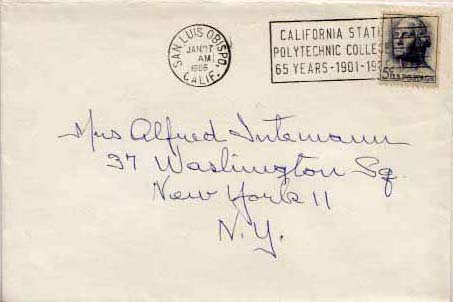 SAN LUIS OBISPO,
JAN 27
AM
1966
CALIF.
CALIFORNIA STATE
POLYTECHNIC COLLEGE
65 YEARS-1901-19
5¢ U.S. POSTAGE
Mrs Alfred Intemann
37 Washington Sq.
New York 11
N.Y.